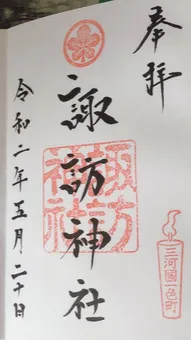 奉拝
諏訪神社
諏訪神社
三河國一色町
令和二年五月二十日